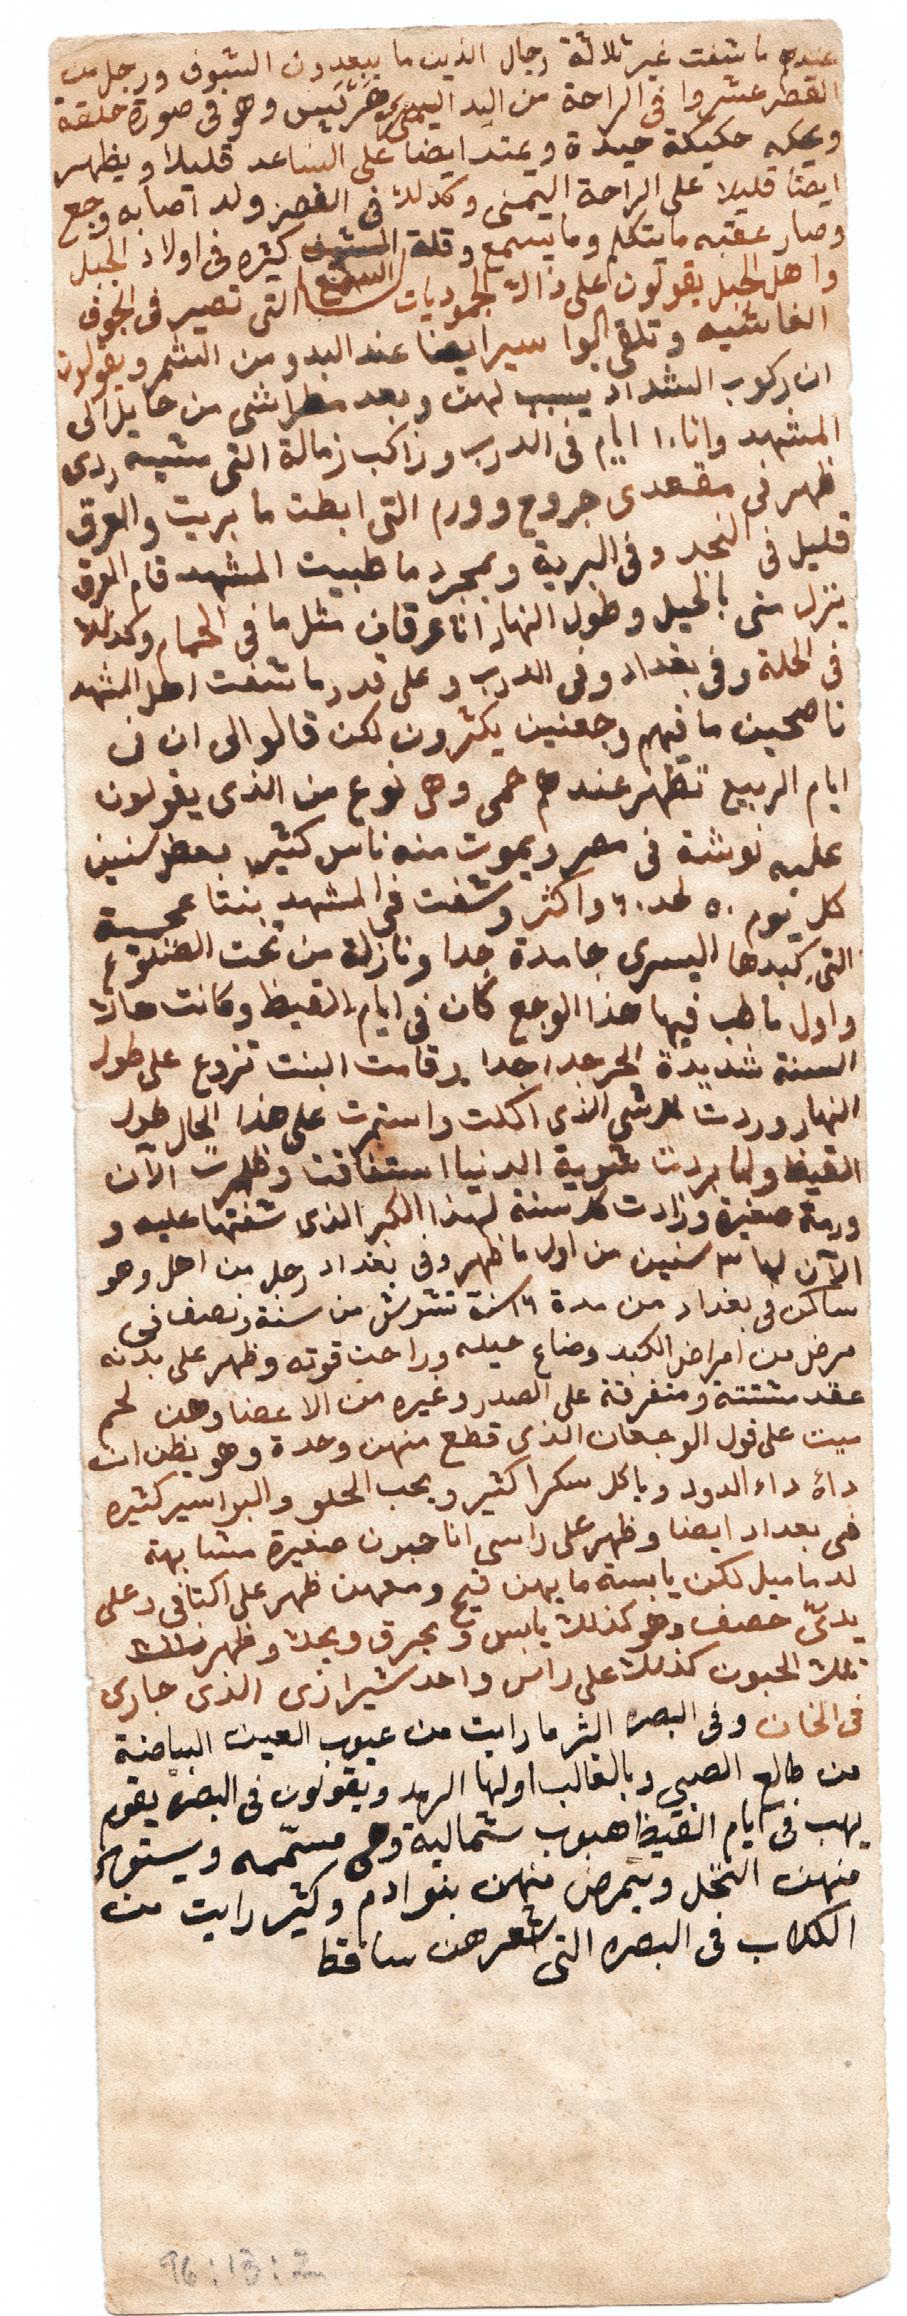 عندهم ما شفت غير ثلاثة رجال الذين ما يبعدون الشوف ورجل من
القصر عشروا فى الراحة من اليد اليمنى وهو فى صورة حلقة
ويحكه حكيكة جيدة ويمتد ايضا على الساعد قليلا ويظهر
ايضا قليلا على الراحة اليمنى وكذلك فى القصر ولد اصابه وجع
وصار عقبه ما يتكلم وما يسمع وقلة السمع كثيره فى اولاد الجبل
واهل الجبل يقولون على ذالك الجموديات التى تصير فى الجوف
الفاشيه وتلقى البواسير ايضا عند البدو من الشمر ويقولون
ان ركوب الشداد يسبب لهن وبعد مطراشى من حايل الى
المشهد وانا ١٠ ايام فى الدرب وراكب زمالة التى مشيه ردى
ظهر فى مقعدى جروح وورم التى ابطت ما بريت والعرق
قليل فى النجد وفى البرية وبمجرد ما طبيت المشهد قام العرق
ينزل منى بالحيل وطول النهار انا عرقان مثل ما فى الحمام وكذلك
فى الحلة وفى بغداد وفى الدرب وعلى قدر ما شفت اهل المشهد
ناصحين ما فيهم وجعنين يكثرون لكن قالوا لى ان فى
ايام الربيع تظهر عندهم حمى وهى نوع من الذى يقولون
عليه نوشة فى مصر ويموت منه ناس كثير بعض سنين
كل يوم ٥٠ لحد ٦٠ واكثر وشفت فى المشهد بنتا عجمية
التى كبدها اليسرى جامدة جدا ونازلة من تحت الضلوع
واول ما هب فيها هذا الوجع كان فى ايام القيظ وكانت هاك
السنة شديدة الحر جدا جدا وقامت البنت تزوع على طول
النهار وردت كل شى الذى اكلت واستمرت على هذا الحال طول
القيظ ولما بردت شوية الدنيا استفاقت وظهرت الآن
ورمة صغيرة وزادت كل سنة لهذا الكبر الذى شفتها عليه و
الآن لها ٣ سنين من اول ما ظهر وفى بغداد رجل من اهل وهو
ساكن فى بغداد من مدة ١٦ سنة تشوش من سنة ونصف فى
مرض من امراض الكبد وضاع حيله وراحت قوته وظهر على بدنه
عقد مشتتة ومتفرقة على الصدر وغيره من الاعضا وهن لحم
ميت على قول الوجعان الذى قطع منهن وحدة وهو يظن ان
داؤه داء الدود وياكل سكرا كثير ويحب الحلو والبواسير كثيره
فى بغداد ايضا وظهر على راسى انا حبون صغيرة مشابهة
لدماميل لكن يابسة ما بهن قيح ومعهن ظهر على اكتافى وعلى
يدىّ حصف وهو كذلك يابس ويحرق ويحك وظهر
تلك الحبون كذلك على راس واحد شيرازى الذى جارى
فى الخان وفى البصره اكثر ما رايت من عيوب العين البياضية
من طالع الصبى وبالغالب اولها الرمد ويقولون فى البصره يقوم
يهب فى ايام القيظ هبوب شمالية وهى مسمّمه ويستوى
منهن النخل ويمرض منهن بنوادم وكثير رايت من
الكلاب فى البصره التى شعرهن ساقط
96:13:2